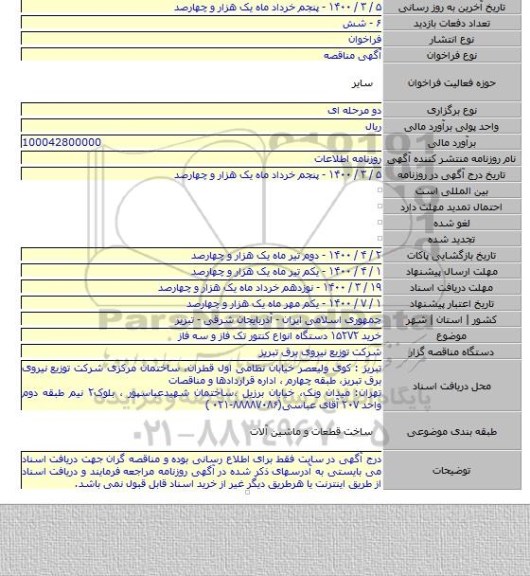 تاریخ آخرین به روز رسانی ۵ / ۳ / ۱۴۰۰ - پنجم خرداد ماه یک هزار و چهارصد
تعداد دفعات بازدید ۶ - شش
نوع انتشار فراخوان
نوع فراخوان آگهی مناقصه
حوزه فعالیت فراخوان سایر
نوع برگزاری دو مرحله ای
واحد پولی برآورد مالی ریال
برآورد مالی 100042800000
نام روزنامه منتشر کننده آگهی روزنامه اطلاعات
تاریخ درج آگهی در روزنامه ۵ / ۳ / ۱۴۰۰ - پنجم خرداد ماه یک هزار و چهارصد
بین المللی است
احتمال تمدید مهلت دارد
لغو شده
تجدید شده
تاریخ بازگشایی پاکات ۲ / ۴ / ۱۴۰۰ - دوم تیر ماه یک هزار و چهارصد
مهلت ارسال پیشنهاد ۱ / ۴ / ۱۴۰۰ - یکم تیر ماه یک هزار و چهارصد
مهلت دریافت اسناد ۱۹ / ۳ / ۱۴۰۰ - نوزدهم خرداد ماه یک هزار و چهارصد
تاریخ اعتبار پیشنهاد ۱ / ۷ / ۱۴۰۰ - یکم مهر ماه یک هزار و چهارصد
کشور | استان | شهر جمهوری اسلامی ایران - آذربایجان شرقی - تبریز
موضوع خرید ۱۵۲۷۲ دستگاه انواع کنتور تک فاز و سه فاز
دستگاه مناقصه گزار شرکت توزیع نیروی برق تبریز
محل دریافت اسناد تبریز : کوی ولیعصر خیابان نظامی اول قطران، ساختمان مرکزی شرکت توزیع نیروی
برق تبریز، طبقه چهارم ، اداره قراردادها و مناقصات
تهران: میدان ونک، خیابان برزیل ،ساختمان شهیدعباسپور ، بلوک۲ نیم طبقه دوم
واحد ۲۰۷ آقای عباسی(۸۸۸۷۰۸۶-۰۲۱)
طبقه بندی موضوعی ساخت قطعات و ماشین آلات
توضیحات درج آگهی در سایت فقط برای اطلاع رسانی بوده و مناقصه گران جهت دریافت اسناد
می بایستی به آدرسهای ذکر شده در آگهی روزنامه مراجعه فرمایند و دریافت اسناد
از طریق اینترنت یا هرطریق دیگر غیر از خرید اسناد قابل قبول نمی باشد.